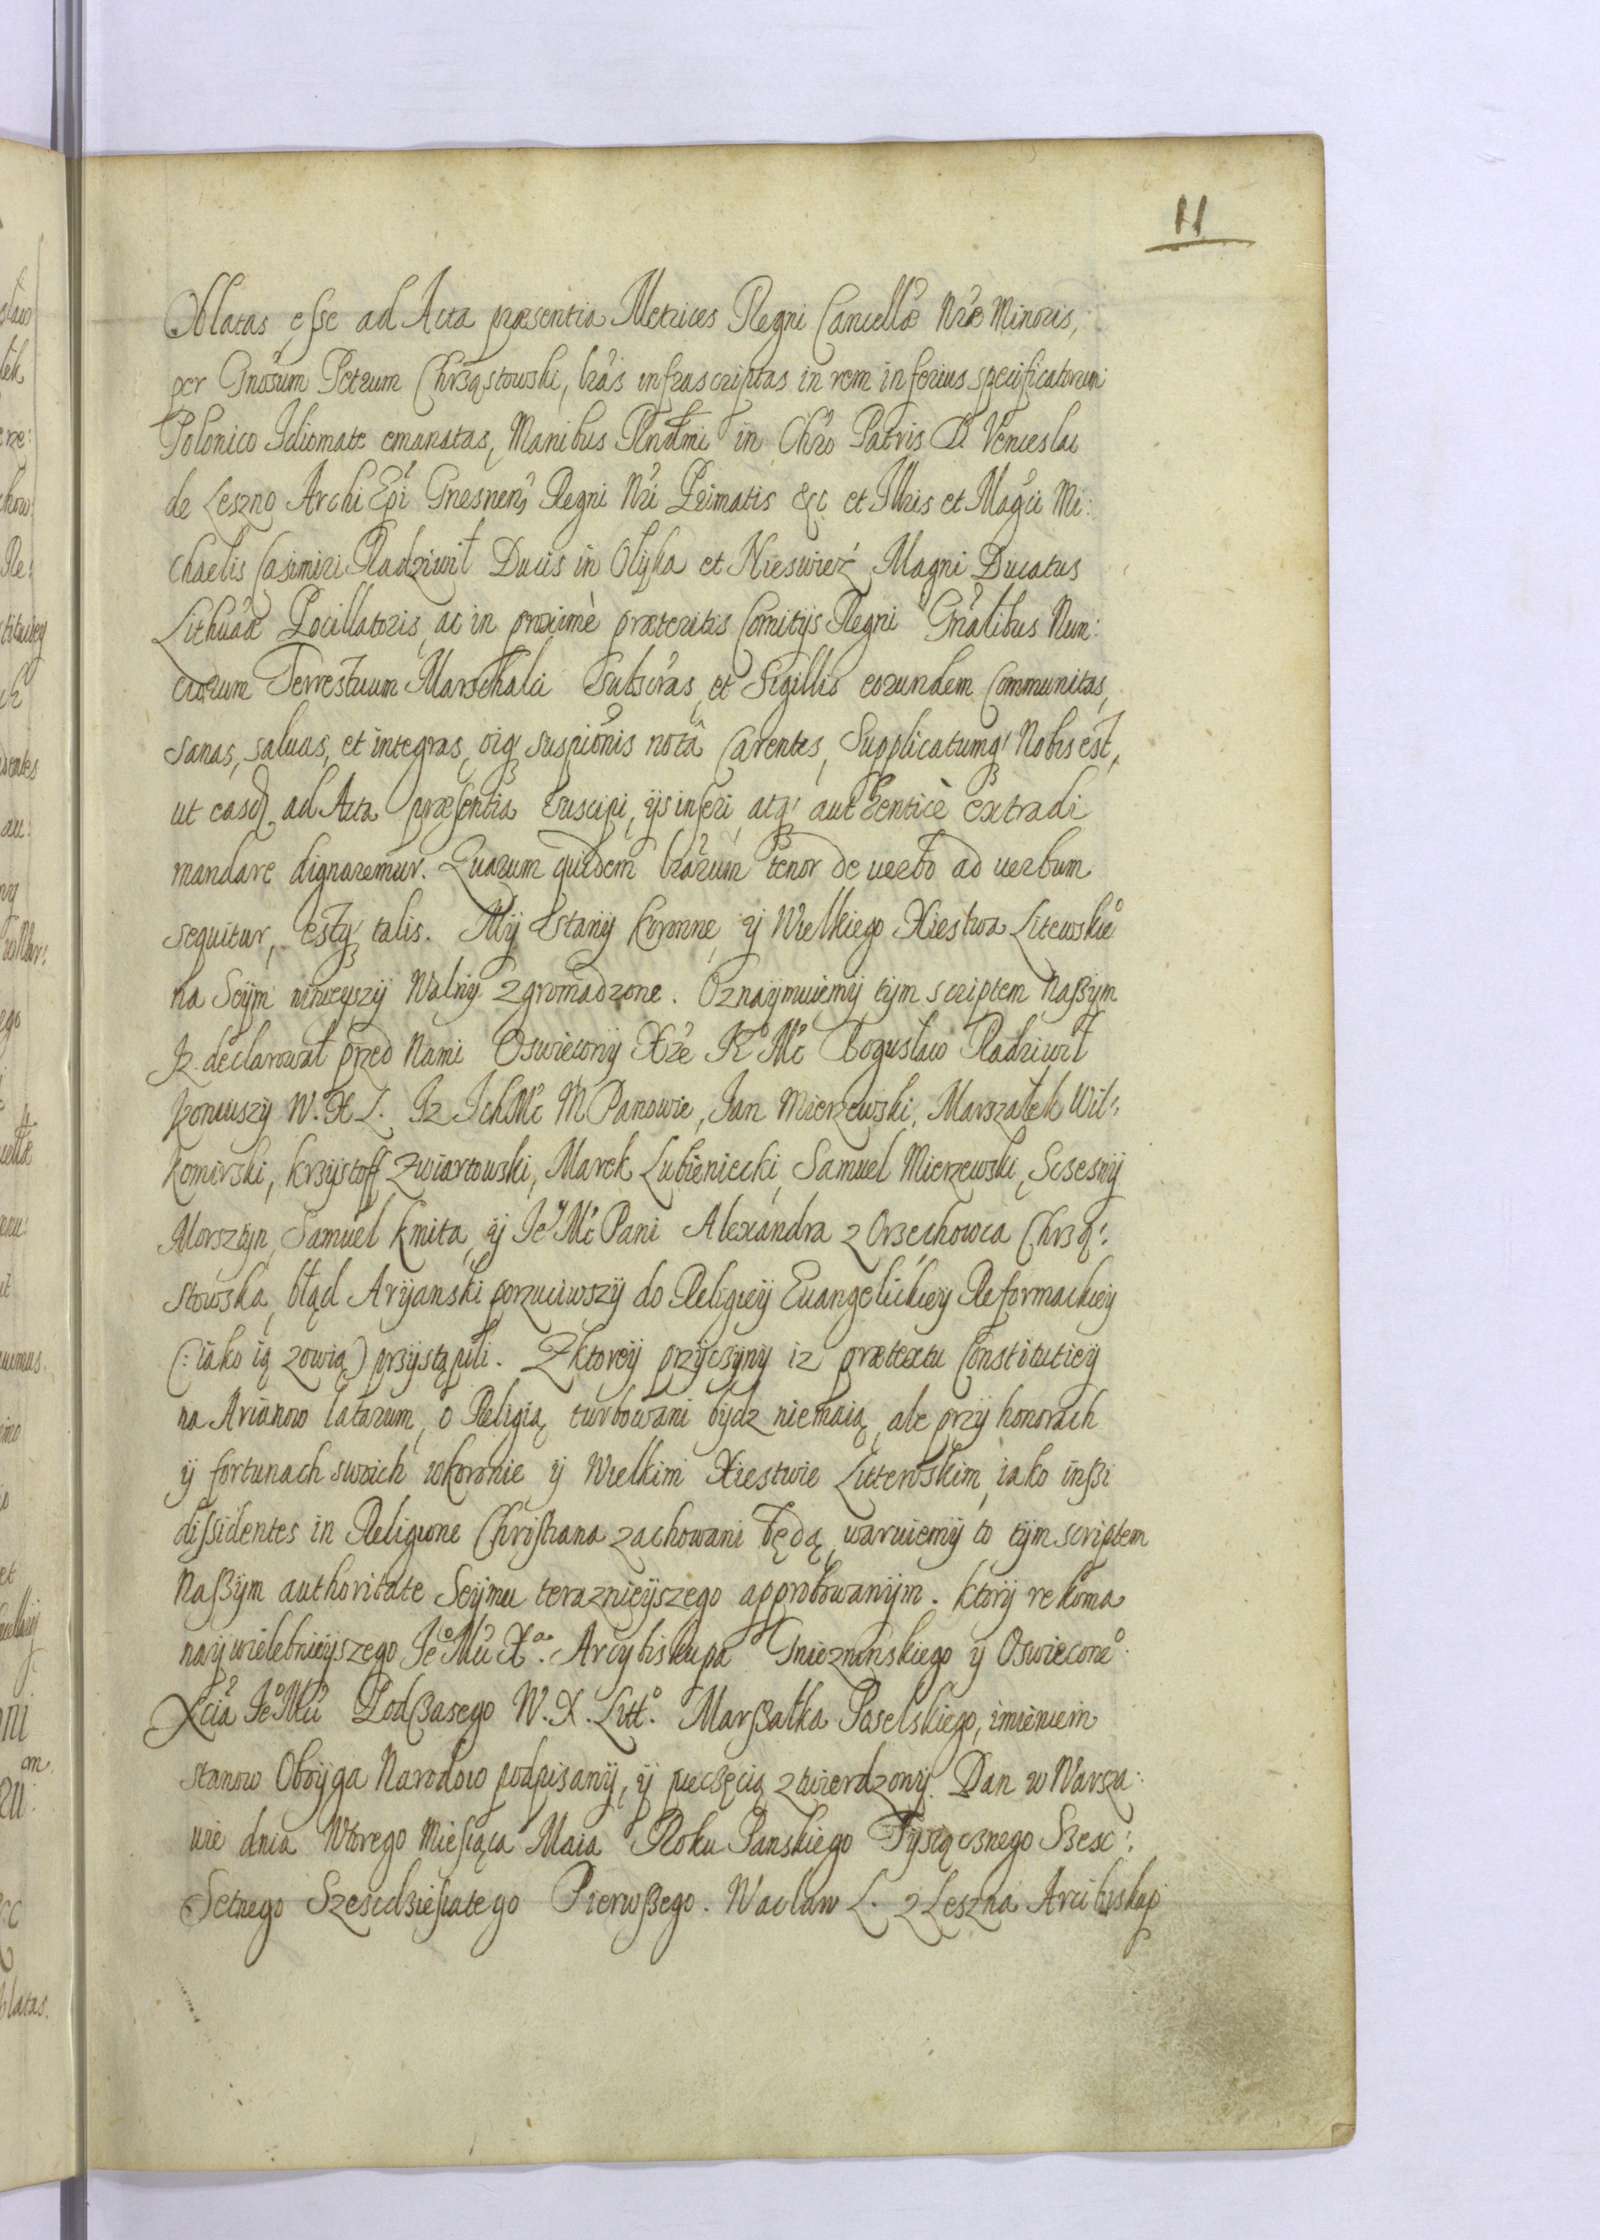 11
Oblatas, esse ad Acta præsentia Metrices Regni Cancellæ Nræ Minoris,
per Gnosum Petrum Chrząstowski, lras infrascriptas in rem inferius specificatorum
Polonico Idiomate emanatas, Manibus Rndmi in Chro Patris D. Venceslai
de Leszno Archi Epi Gnesnen, Regni Nri Primatis &c et Illris et Magci Mi:
chaelis Casimiri Radziwił Ducis in Olyka et Nieswież Magni Ducatus
Lithuaæ Pocillatoris, ac in proximè præteritis Comitijs Regni Gnalibus Nun:
ciorum Terrestrium Marschalci subscras, et Sigillis eorundem Communitas,
sanas, saluas, et integras, oiq suspionis notâ Carentes, Supplicatumq Nobis est,
ut easd ad Acta præsentia suscipi, ijs inseri, atq authenticè extradi
mandare dignaremur. Quarum quidem lrarum tenor de uerbo ad uerbum
sequitur, estq talis. My Stany Koronne, y Wielkiego Xiestwa Litewskie
na Seym ninieyszy Walny zgromadzone. Oznaymuiemy tym scriptem Naßym
Jz declarował przed Nami Oswiecony Xże Je Mc Bogusław Radziwił
Koniuszy W. X L. Jz Ich Mc M Panowie, Jan Mierzewski, Marszałek Wił:
komirski, Krzysztoff Zwiartowski, Marek Lubieniecki, Samuel Mierzewski, Sczesny
Morsztyn, Samuel Kmita, y Jey Mc Pani Alexandra z Orzechowca Chrzą:
stowska, błąd Aryanski porzuciwszy do Religiey Euangelickiey Reformackiey
(: iako ią zowią) przystąpili. Z ktorey przyczyny iz prætextu Constitutiey
na Arianow latarum, o Religią turbowani bydz niemaią, ale przy honorach
y fortunach swoich w koronie y Wielkim Xiestwie Litterwskim, iako inßi
dissidentes in Religione Christiana zachowani będą, waruiemy to tym scriptem
Naßym authoritate Seymu teraznieyszego approbowanym. ktory rękoma
naywielebnieyszego Je Mci Xa. Arcybiskupa Gniezninskiego y Oswiecone
Xcia Je Mci Podßasego W. X. Litt. Marßałka Poselskiego, imieniem
stanow Oboyga Narodow podpisany, y pieczęcią ztwierdzony. Dan w Warsza:
wie dnia Wtorego Miesiąca Maia Roku Panskiego Tysiącznego Szesc:
Setnego Szescdziesiatego Pierwßego. Wacław L. z Leszna Arcibiskup